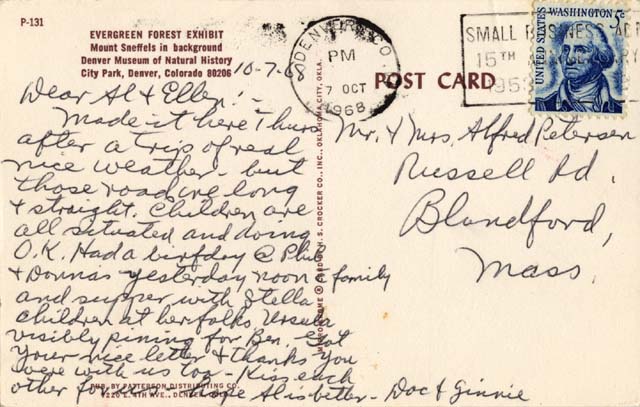 P-131
EVERGREEN FOREST EXHIBIT
Mount Sneffels in background
Denver Museum of Natural History
City Park, Denver, Colorado 80206
10-7-68
Dear Al & Ellen: -
Made it here Thurs
after a trip of real
nice weather - but
those roads are long
& straight. Children are
all situated and doing
O.K. Had a birfday @ Phil
& Donna's yesterday noon & family
and supper with Stella
children at her folks. Ursula
visibly pining for Ben. Got
your nice letter & thanks you
were with us too - Kiss each
other for Hope Al is better - Doc & Ginnie
PUB. BY PATTERSON DISTRIBUTING CO.
7226 E. 4TH AVE., DENVER
MIRRO-KROME ® CARD BY H. S. CROCKER CO., INC., OKLAHOMA CITY, OKLA.
DENVER, CO
PM
7 OCT
1968
POST CARD
SMALL BUSINESS ACT
15TH ANNIVERSARY
1953
UNITED STATES
WASHINGTON
5c
Mr. & Mrs. Alfred Petersen
Russell Rd.
Blandford,
Mass.